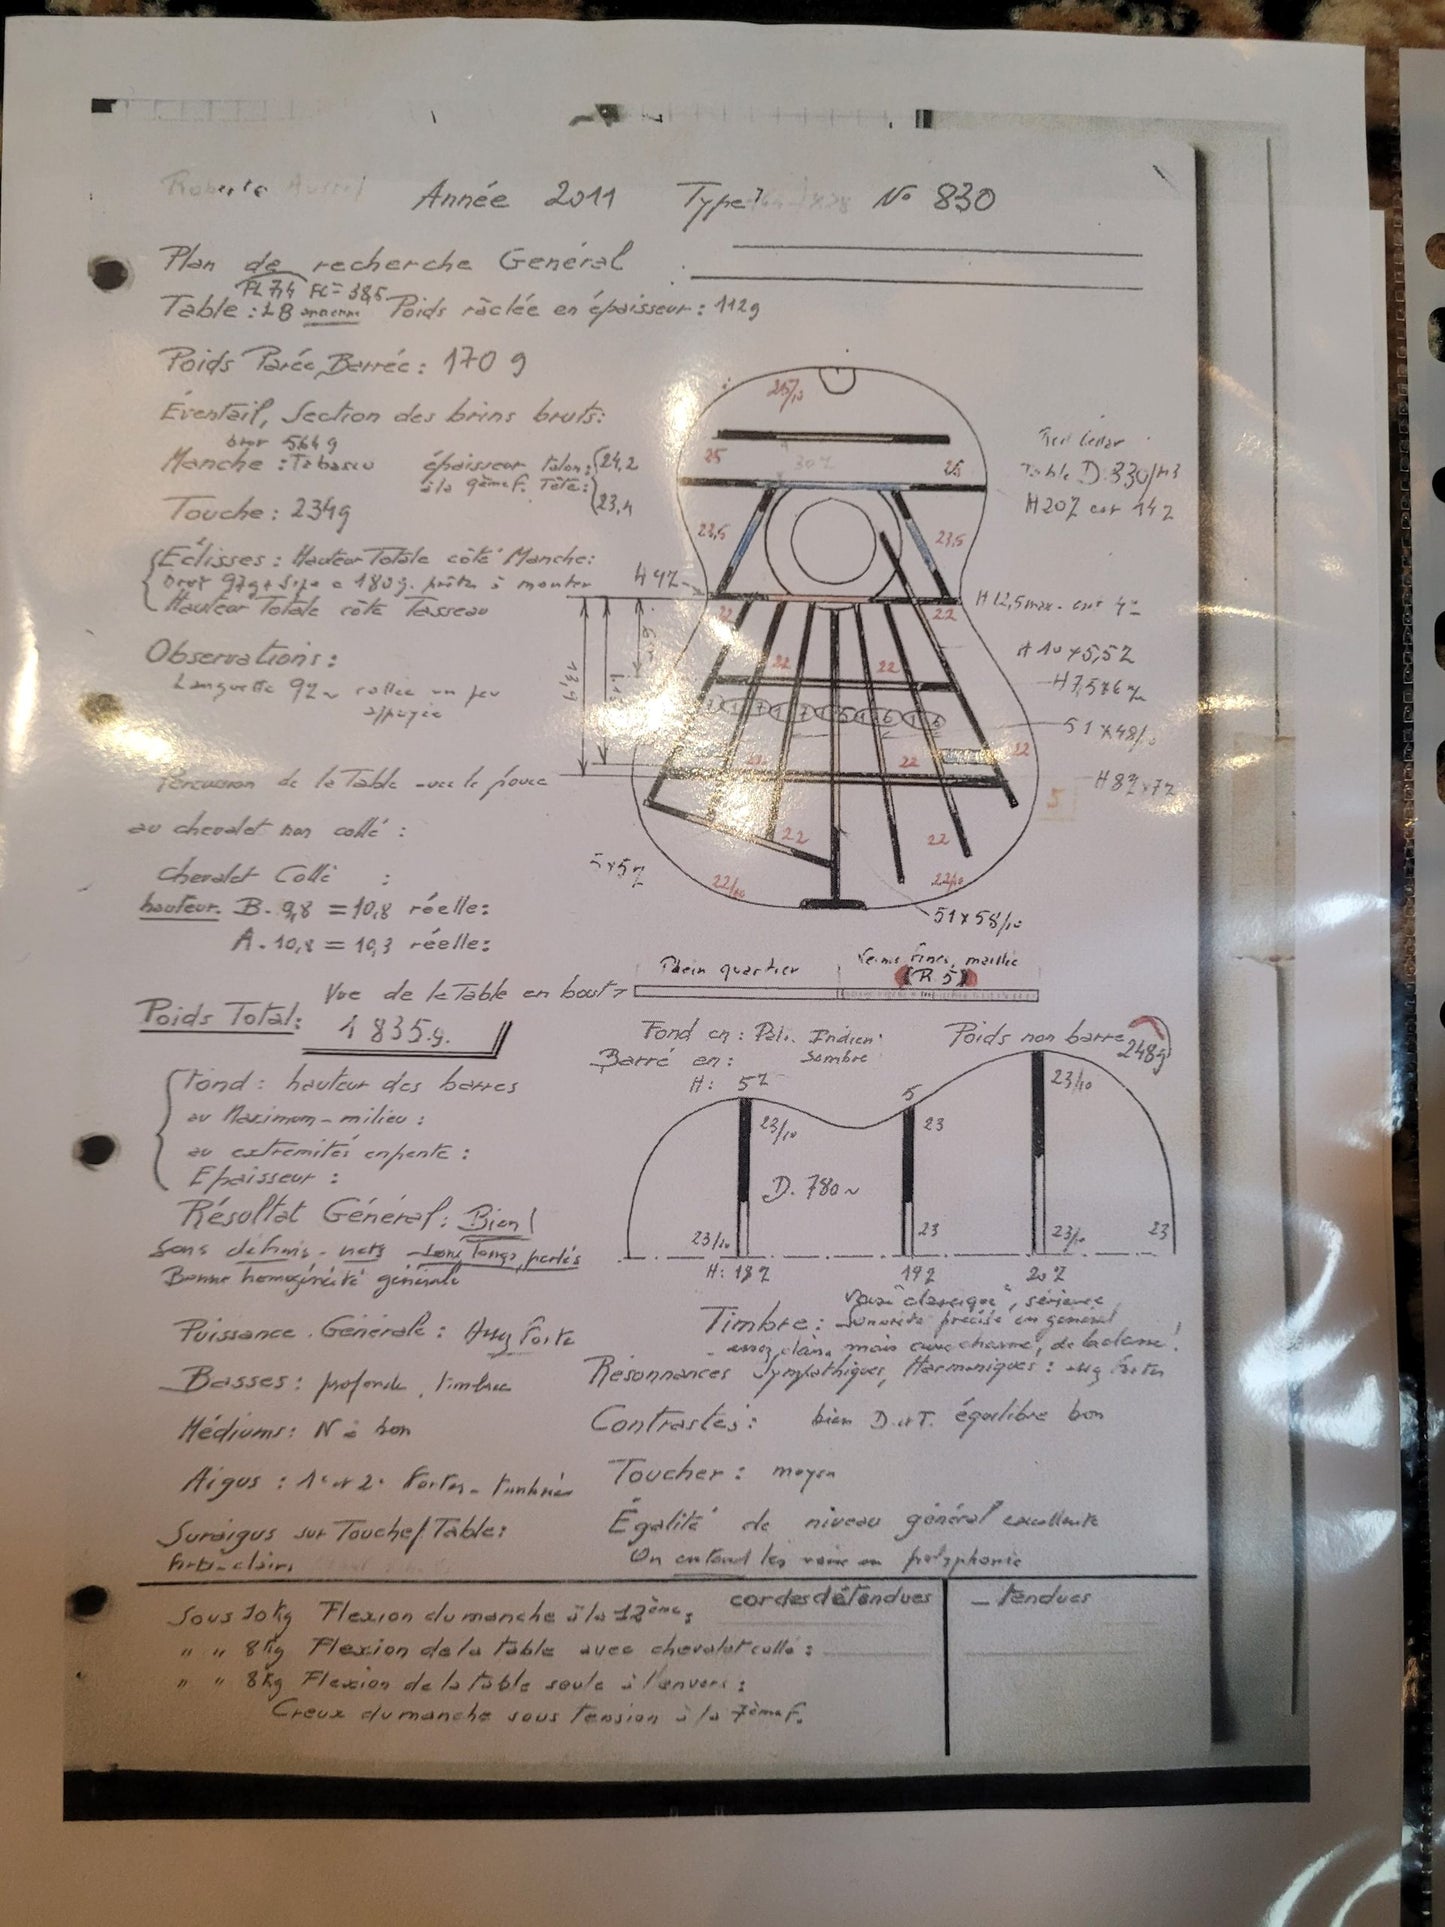 Année 2011 Type N° 830
Plan de recherche Général
Table : Poids râclée en épaisseur : 112g
Poids Parée, Barrée : 170 g
Éventail, Section des brins bruts :
brut 564 g
Manche : Tabasco épaisseur talon : 24,2
à la 9ème F. Tête : 23,4
Touche : 234g
Éclisses : Hauteur Totale côté Manche :
Hauteur Totale côté Tasseau
Observations :
Languette 92~ collée un peu
appuyée
Percussion de la Table avec le pouce
au chevalet non collé :
Chevalet Collé :
hauteur. B. 9,8 = 10,8 réelle :
A. 10,8 = 10,3 réelle :
Vue de la Table en bout
Poids Total : 1835g.
Fond : hauteur des barres
au Maximum - milieu :
au extrémités en pente :
Epaisseur :
Résultat Général : Bien !
Sons définis - nets - sons longs, perlés
Bonne homogénéité générale
Puissance Générale : Assez Forte
Basses : profonde, timbre
Médiums : N à bon
Aigus : 1° et 2° Fortes - timbrées
Suraigus sur Touche/Table :
forts - clairs
25
25
23,5
23,5
22
22
22
22
13,9
22
22
22
22
22/10
22/10
5
Red Cedar
Table D. 330/M3
H 12,5 max.
H 10 x 5,5
51 x 48/10
51 x 58/10
Plein quartier
Veines fines, maillée
R. 5
Fond en : Pal. Indien
Sombre
Poids non barré 248g
Barré en :
H : 5
5
23/10
23
23/10
D. 780 ~
23/10
23
23/10
23
H : 18
19
20
Voix "classique", sérieuse
Timbre : Sonorité précise en général
assez claire mais avec charme, de la classe !
Résonnances Sympathiques, Harmoniques : assez fortes
Contrastes : bien D. et T. équilibre bon
Toucher : moyen
Égalité de niveau général excellente
On entend les voix en polyphonie
cordes détendues - Tendues
Sous 10kg Flexion du manche à la 12ème :
" " 8kg Flexion de la table avec chevalet collé :
" " 8kg Flexion de la table seule à l'envers :
Creux du manche sous tension à la 7ème F.